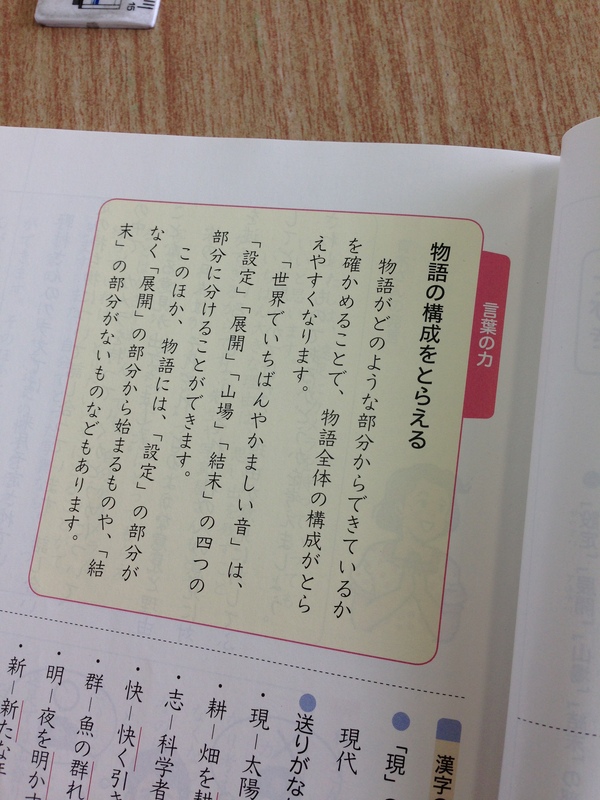 言葉の力
物語の構成をとらえる
物語がどのような部分からできているか
を確かめることで、物語全体の構成がとら
えやすくなります。
「世界でいちばんやかましい音」は、
「設定」「展開」「山場」「結末」の四つの
部分に分けることができます。
このほか、物語には、「設定」の部分が
なく「展開」の部分から始まるものや、「結
末」の部分がないものなどもあります。
漢字の
●「現」の
現代
●送りがな
・現―太陽
・耕―畑を耕
・志―科学者
・快―快く引き
・群―魚の群れ
・明―夜を明か
・新―新たな
15